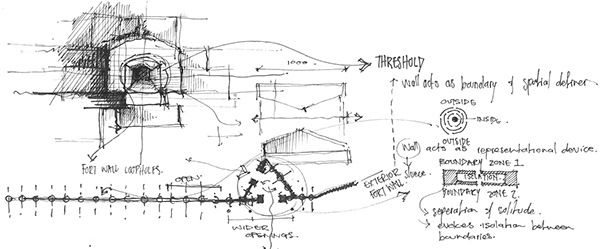 THRESHOLD
1000
wall acts as boundary & spatial definer
OUTSIDE
INSIDE.
OUTSIDE
wall acts as representational device.
BOUNDARY ZONE 1.
ISOLATION.
BOUNDARY ZONE 2
seperation & solitude.
evokes isolation between
boundaries.
FORT WALL
OPEN
EXTERIOR
FORT WALL
WIDER
OPENINGS.